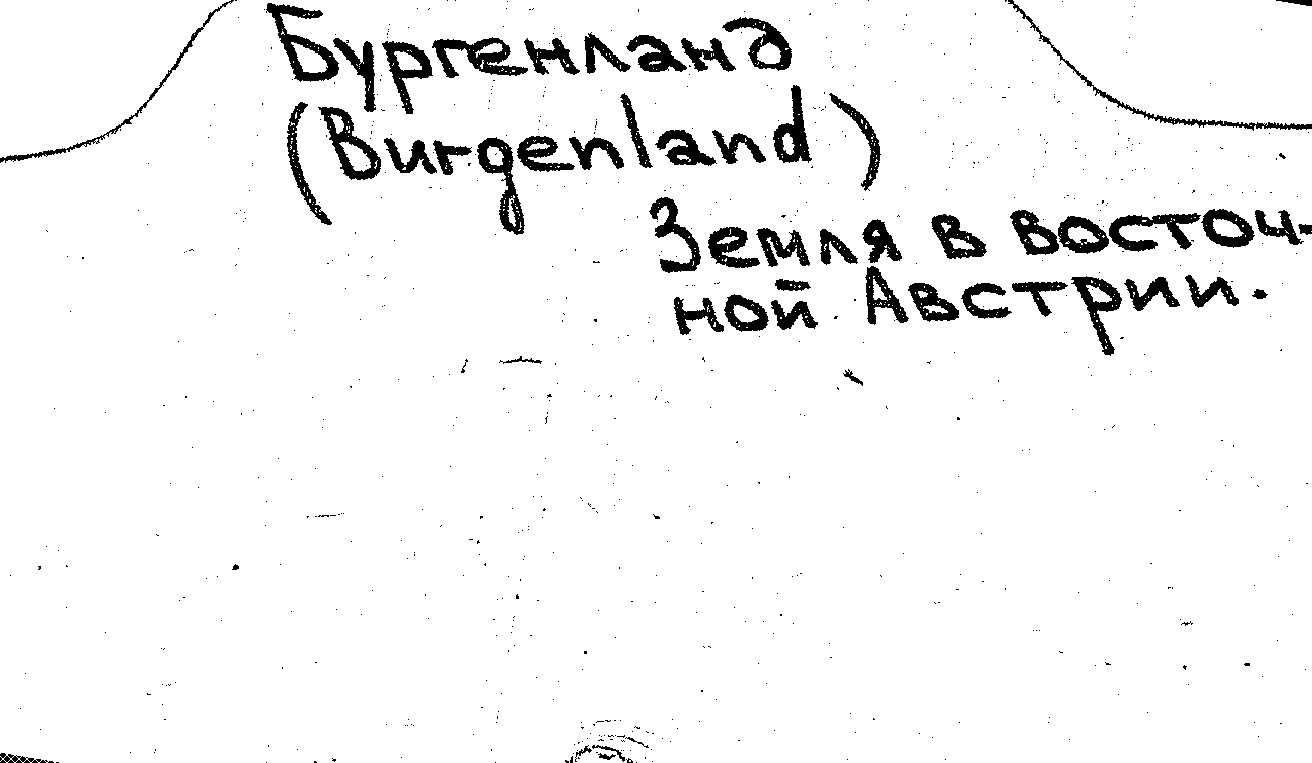 Бургенланд
(Burgenland)
Земля в восточ-
ной Австрии.